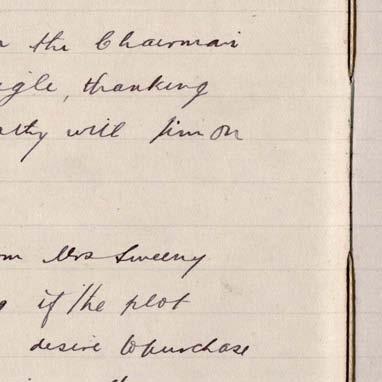 the Chairman
igle, thanking
athy with him on
om Mrs Sweeny
g if the plot
desire to purchase